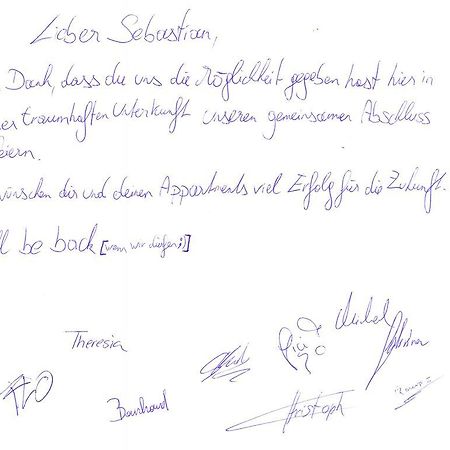 Lieber Sebastian,
Dank, dass du uns die Möglichkeit gegeben hast hier in
er traumhaften Unterkunft unseren gemeinsamen Abschluss
eiern.
wünschen dir und deinen Appartments viel Erfolg für die Zukunft.
ll be back [wenn wir dürfen ;)]
Theresia
Christoph